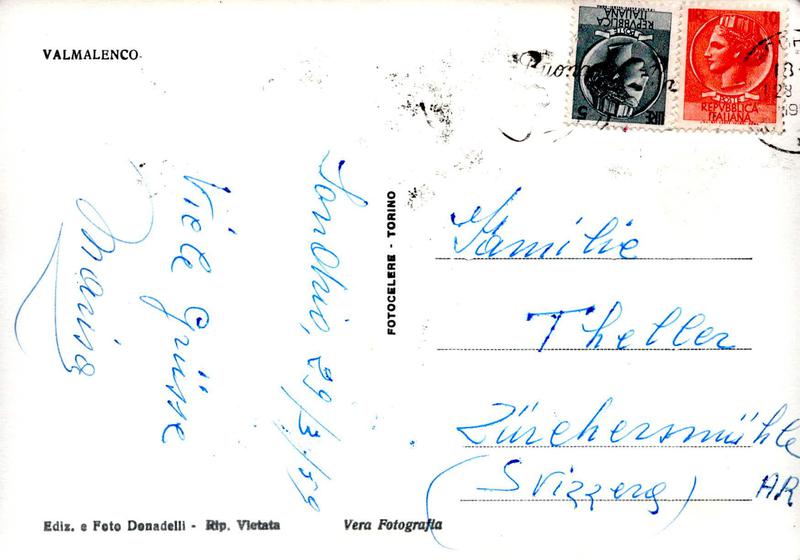 VALMALENCO
Sondrio, 29/3/59
Viele Grüsse
Marisa
FOTOCELERE - TORINO
Familie
Theller
Zürchersmühle
(Svizzera) AR
Ediz. e Foto Donadelli - Rip. Vietata
Vera Fotografia
POSTE
REPVBBLICA
ITALIANA
LIRE 5
10
POSTE
REPVBBLICA
ITALIANA